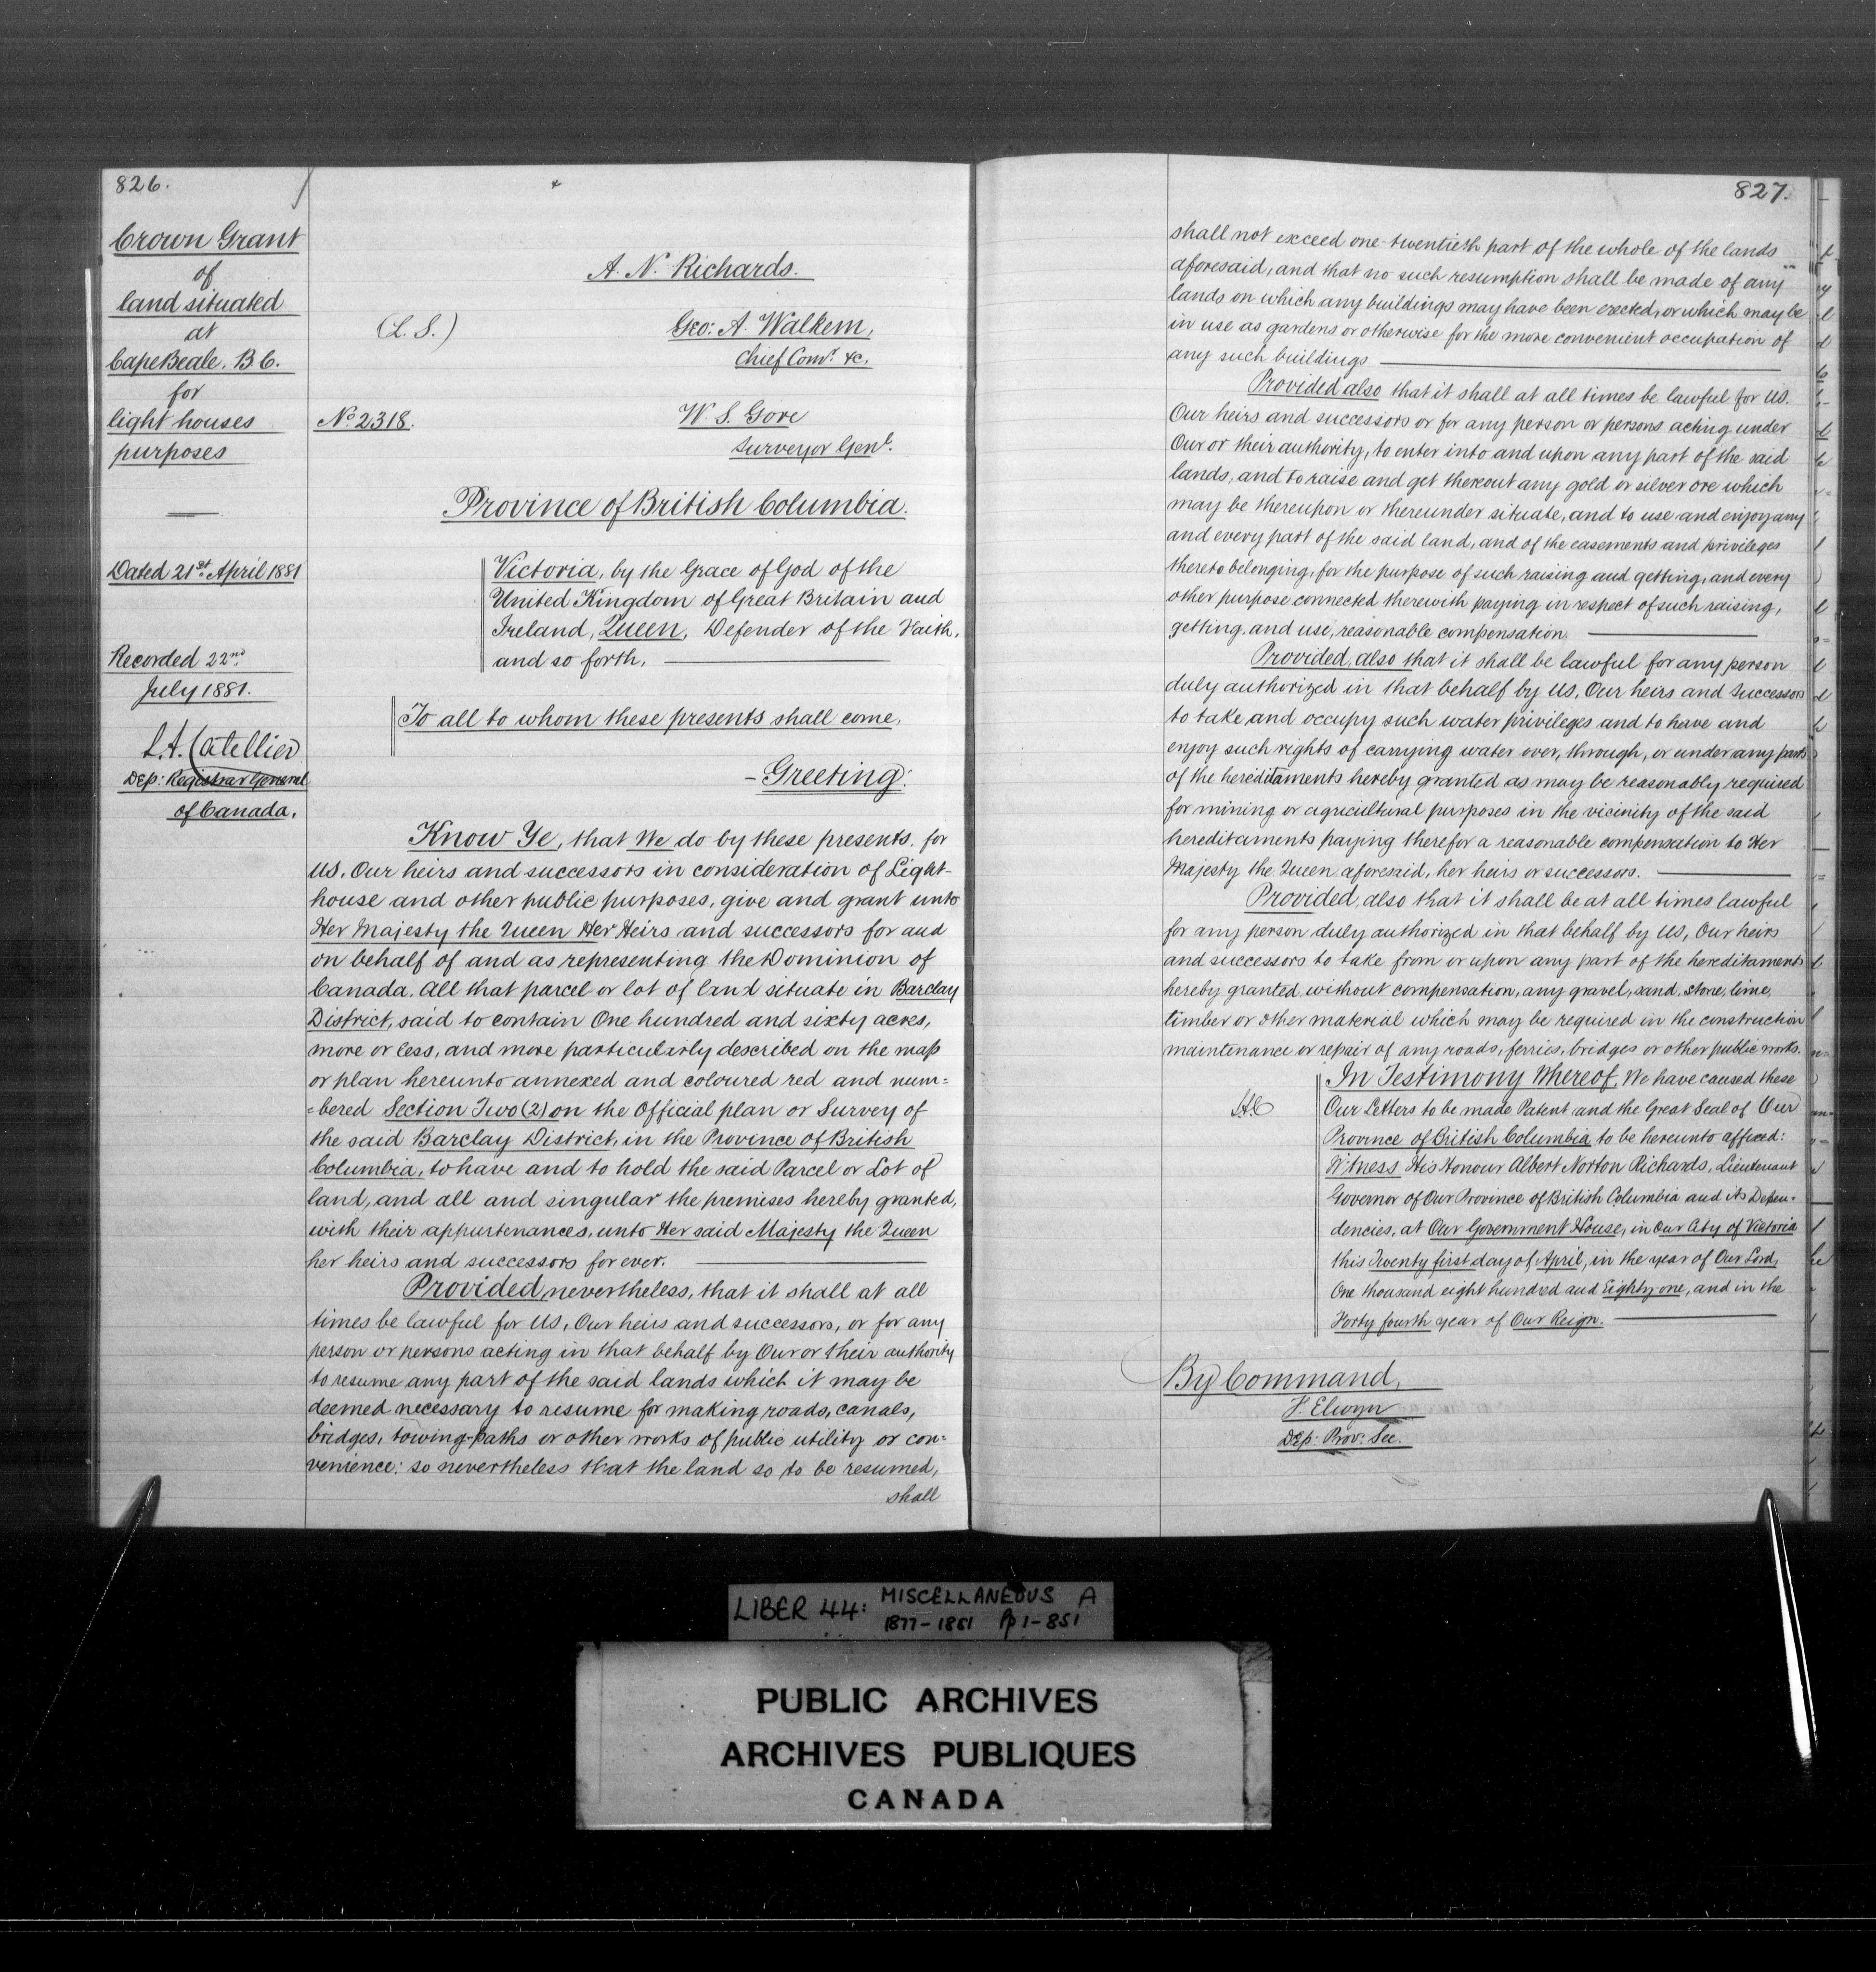 826.
Crown Grant
of
land situated
at
Cape Beale. B C.
for
light houses
purposes
Dated 21st April 1881
Recorded 22nd
July 1881.
L. A. Catellier
Dep: Registrar General
of Canada.
A. N. Richards.
(L. S.)
Geo: A. Walkem,
Chief Comr. &c.
No 2318.
W. S. Gore
Surveyor Genl.
Province of British Columbia.
Victoria, by the Grace of God of the
United Kingdom of Great Britain and
Ireland, Queen, Defender of the Faith,
and so forth,
To all to whom these presents shall come,
- Greeting:
Know Ye, that We do by these presents, for
us, Our heirs and successors in consideration of Light-
house and other public purposes, give and grant unto
Her Majesty the Queen Her Heirs and successors for and
on behalf of and as representing the Dominion of
Canada. All that parcel or lot of land situate in Barclay
District, said to contain One hundred and sixty acres,
more or less, and more particularly described on the map
or plan hereunto annexed and coloured red and num=
=bered Section Two (2) on the Official plan or Survey of
the said Barclay District, in the Province of British
Columbia, to have and to hold the said Parcel or Lot of
land, and all and singular the premises hereby granted,
with their appurtenances, unto Her said Majesty the Queen
her heirs and successors for ever.
Provided, nevertheless, that it shall at all
times be lawful for US, Our heirs and successors, or for any
person or persons acting in that behalf by Our or their authority
to resume any part of the said lands which it may be
deemed necessary to resume for making roads, canals,
bridges, towing-paths or other works of public utility or con=
venience: so nevertheless that the land so to be resumed,
shall
827.
shall not exceed one-twentieth part of the whole of the lands
aforesaid, and that no such resumption shall be made of any
lands on which any buildings may have been erected, or which may be
in use as gardens or otherwise for the more convenient occupation of
any such buildings
Provided also that it shall at all times be lawful for US.
Our heirs and successors or for any person or persons acting under
Our or their authority, to enter into and upon any part of the said
lands, and to raise and get thereout any gold or silver ore which
may be thereupon or thereunder situate, and to use and enjoy any
and every part of the said land, and of the easements and privileges
thereto belonging, for the purpose of such raising and getting, and every
other purpose connected therewith paying in respect of such raising,
getting, and use, reasonable compensation.
Provided, also that it shall be lawful for any person
duly authorized in that behalf by US, Our heirs and successors
to take and occupy such water privileges and to have and
enjoy such rights of carrying water over, through, or under any parts
of the hereditaments hereby granted as may be reasonably required
for mining or agricultural purposes in the vicinity of the said
hereditaments paying therefor a reasonable compensation to Her
Majesty the Queen aforesaid, her heirs or successors.
Provided, also that it shall be at all times lawful
for any person duly authorized in that behalf by US, Our heirs
and successors to take from or upon any part of the hereditaments
hereby granted, without compensation, any gravel, sand, stone, lime,
timber or other material which may be required in the construction
maintenance or repair of any roads, ferries, bridges or other public works.
In Testimony Whereof, We have caused these
Our Letters to be made Patent and the Great Seal of Our
Province of British Columbia to be hereunto affixed:
Witness His Honour Albert Norton Richards, Lieutenant
Governor of Our Province of British Columbia and its Depen-
dencies, at Our Government House, in Our City of Victoria
this Twenty first day of April, in the year of Our Lord,
One thousand eight hundred and Eighty one, and in the
Forty fourth year of Our Reign.
By Command,
T. Elwyn
Dep: Prov: Sec.
LIBER 44: MISCELLANEOUS A
1877-1881 Pp 1-851
PUBLIC ARCHIVES
ARCHIVES PUBLIQUES
CANADA